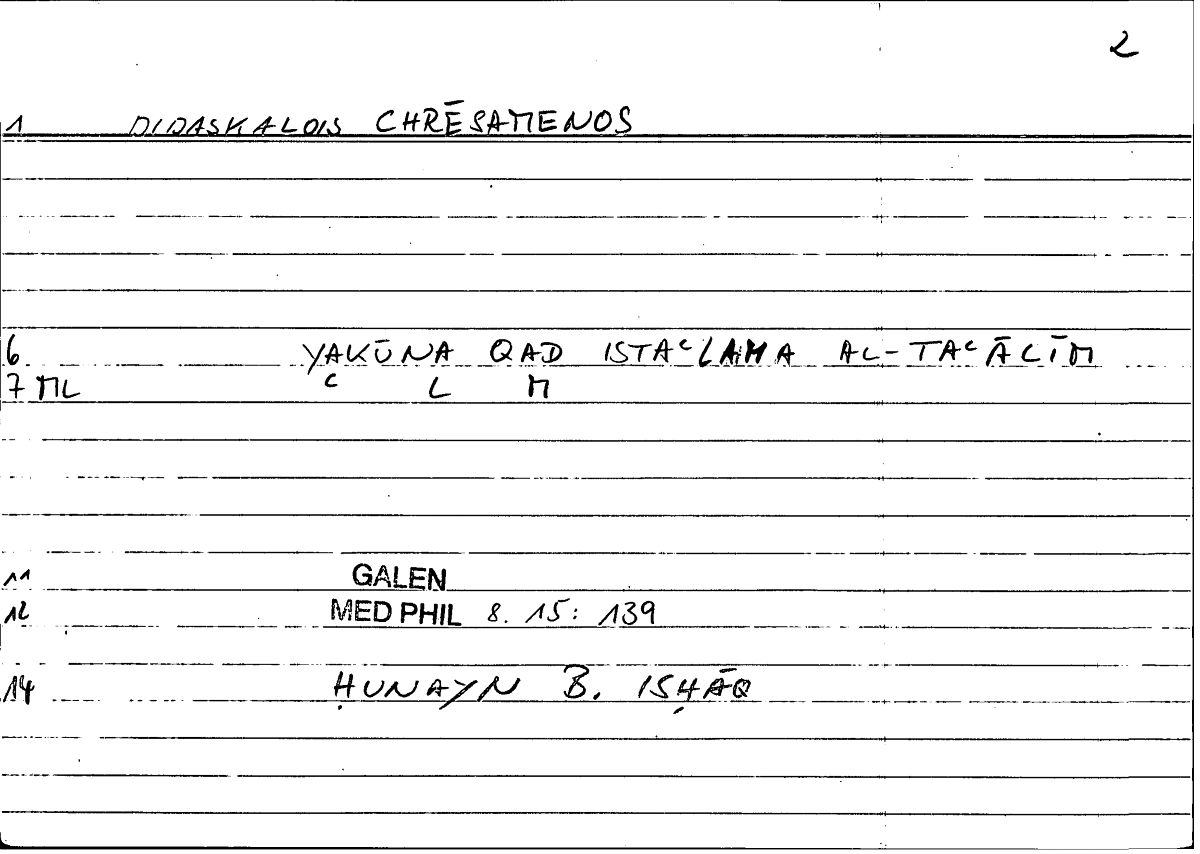 2
1 DIDASKALOIS CHRĒSAMENOS
6 YAKŪNA QAD ISTAᶜLAMA AL-TAᶜĀLĪM
7 ML ᶜ L M
11 GALEN
12 MED PHIL 8. 15: 139
14 ḤUNAYN B. ISḤĀQ